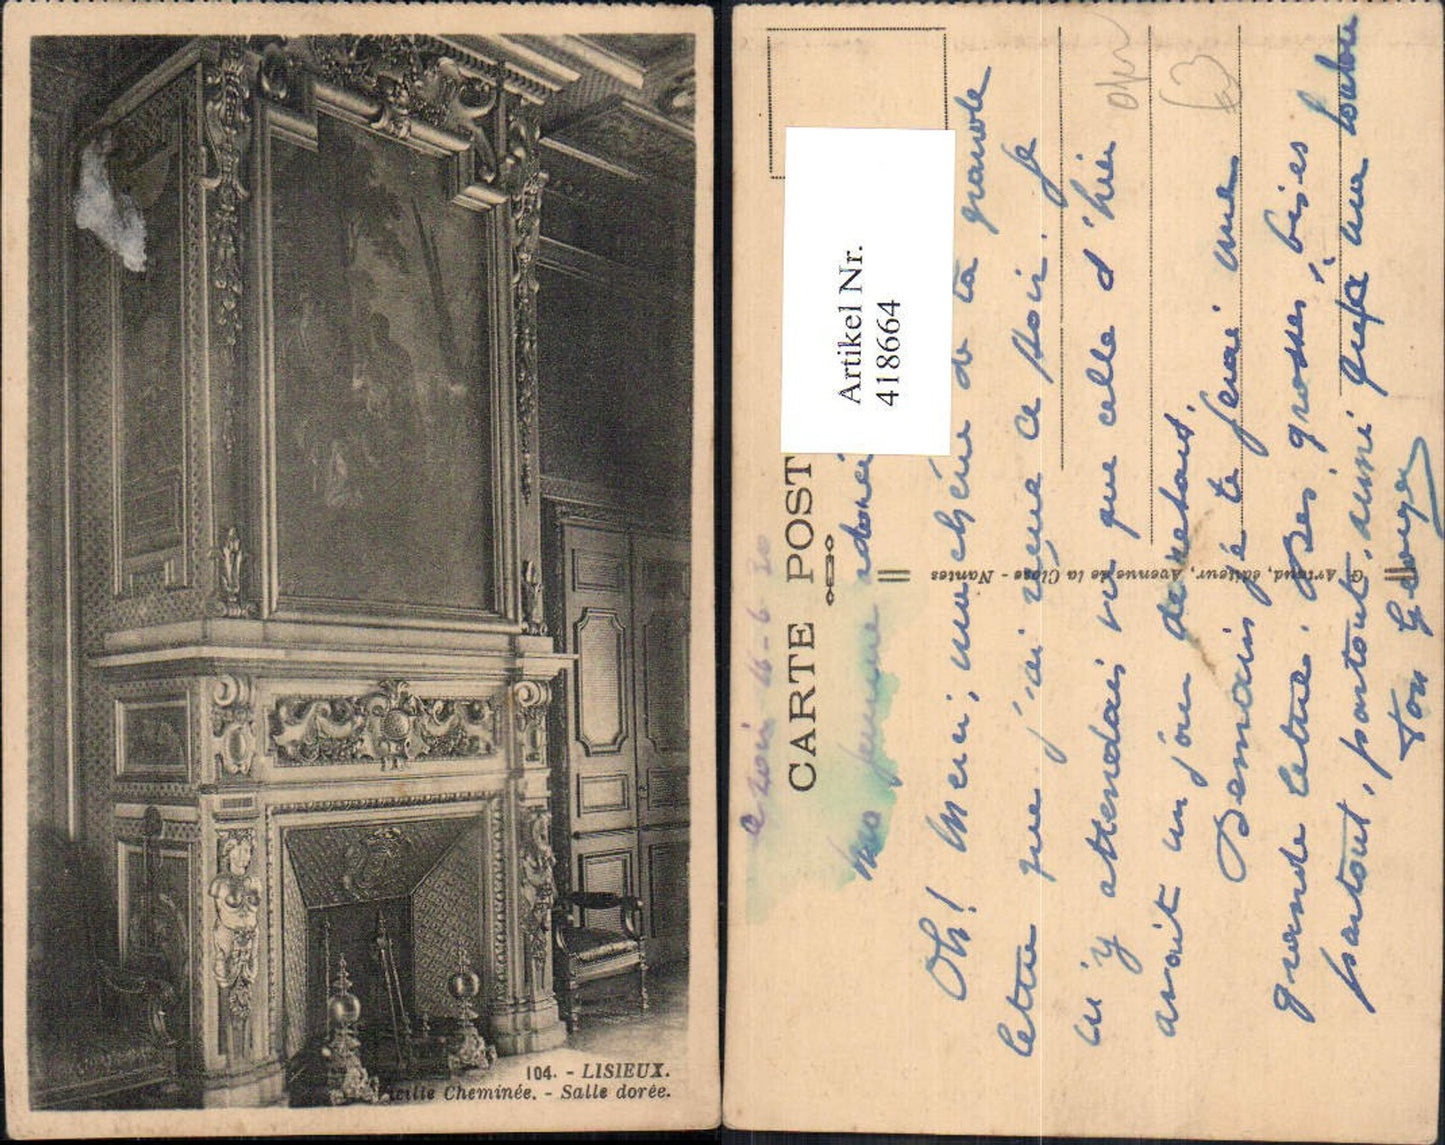 104. - LISIEUX.
Vieille Cheminée. - Salle dorée.
CARTE POST
Artikel Nr.
418664
G. Artaud, éditeur, Avenue de la Close - Nantes
16-6-30
Ma femme adorée
Oh! Merci, ma chérie de ta grande
lettre que j'ai reçue ce soir. Je
m'y attendais vu que celle d'hier
avait un jour de retard.
Demain je te ferai une
grande lettre. Des grosses bises
partout, partout, ainsi qu'à ma loulou
Ton Georges